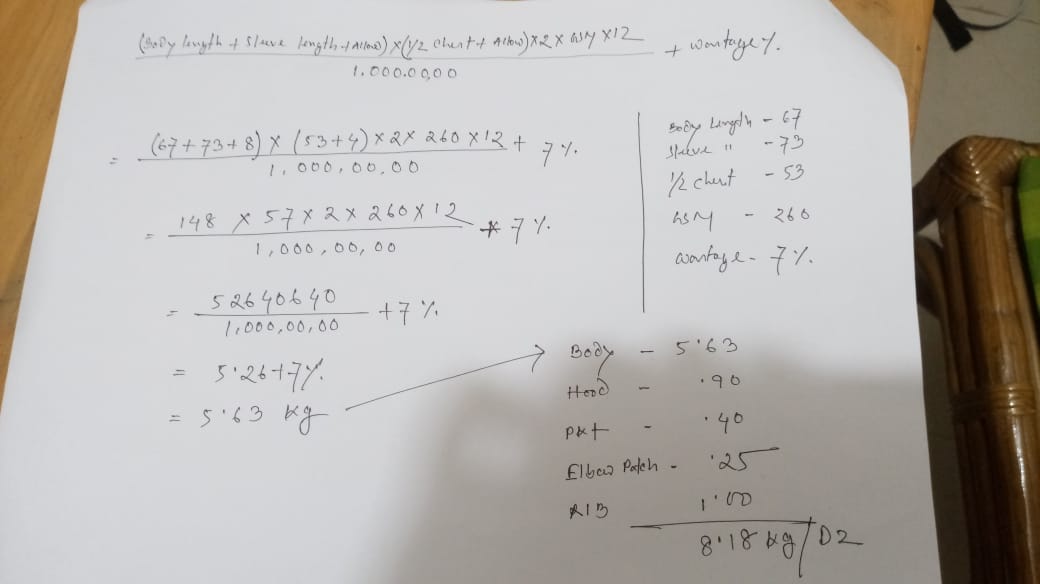 (Body length + Sleeve length + Allow) X (1/2 Chest + Allow) X 2 X GSM X 12 + wastage %.
1.000.00,00
= (67 + 73 + 8) X (53 + 4) X 2 X 260 X 12 + 7 %.
1,000,00,00
= 148 X 57 X 2 X 260 X 12 + 7 %.
1,000,00,00
= 52640640 + 7 %.
1,000,00,00
= 5.26 + 7 %.
= 5.63 kg
Body Length - 67
Sleeve " - 73
1/2 chest - 53
GSM - 260
wastage - 7 %.
Body - 5.63
Hood - .90
PKt - .40
Elbow Patch - .25
RIB 1.00
8.18 kg/DZ